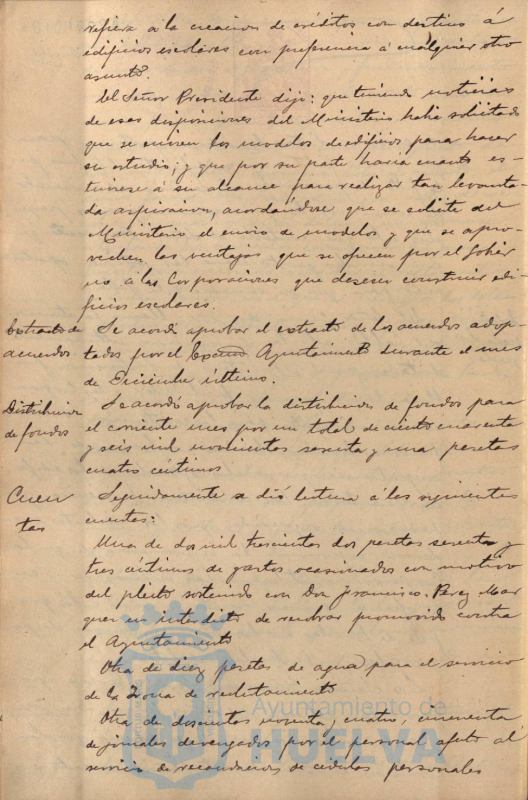 refiere á la creacion de créditos con destino á
edificios escolares con preferencia á cualquier otro
asunto.
El Señor Presidente dijo: que teniendo noticias
de esas disposiciones del Ministerio habia solicitado
que se envien los modelos de edificios para hacer
su estudio; y que por su parte haria cuanto es-
tuviese á su alcance para realizar tan levanta-
da aspiracion, acordandose que se solicite del
Ministerio el envio de modelos y que se apro-
vechen las ventajas que se ofrecen por el Gobier
no á las Corporaciones que deseen construir edi-
ficios escolares.
Extracto de
acuerdos
Se acordó aprobar el extracto de los acuerdos adop-
tados por el Excmo Ayuntamiento durante el mes
de Diciembre último.
Distribucion
de fondos
Se acordó aprobar la distribucion de fondos para
el corriente mes por un total de ciento cuarenta
y seis mil novecientas sesenta y una pesetas
cuatro céntimos
Cuen
tas
Seguidamente se dió lectura á las siguientes
cuentas:
Una de dos mil trescientas dos pesetas sesenta y
tres céntimos de gastos ocasionados con motivo
del pleito sostenido con Don Francisco Perez Mar
quez en interdicto de recobrar promovido contra
el Ayuntamiento
Otra de diez pesetas de agua para el servicio
de la Zona de reclutamiento
Otra de doscientas noventa y cuatro, cincuenta
de jornales devengados por el personal afecto al
servicio de recaudacion de cédulas personales
Ayuntamiento de
HUELVA